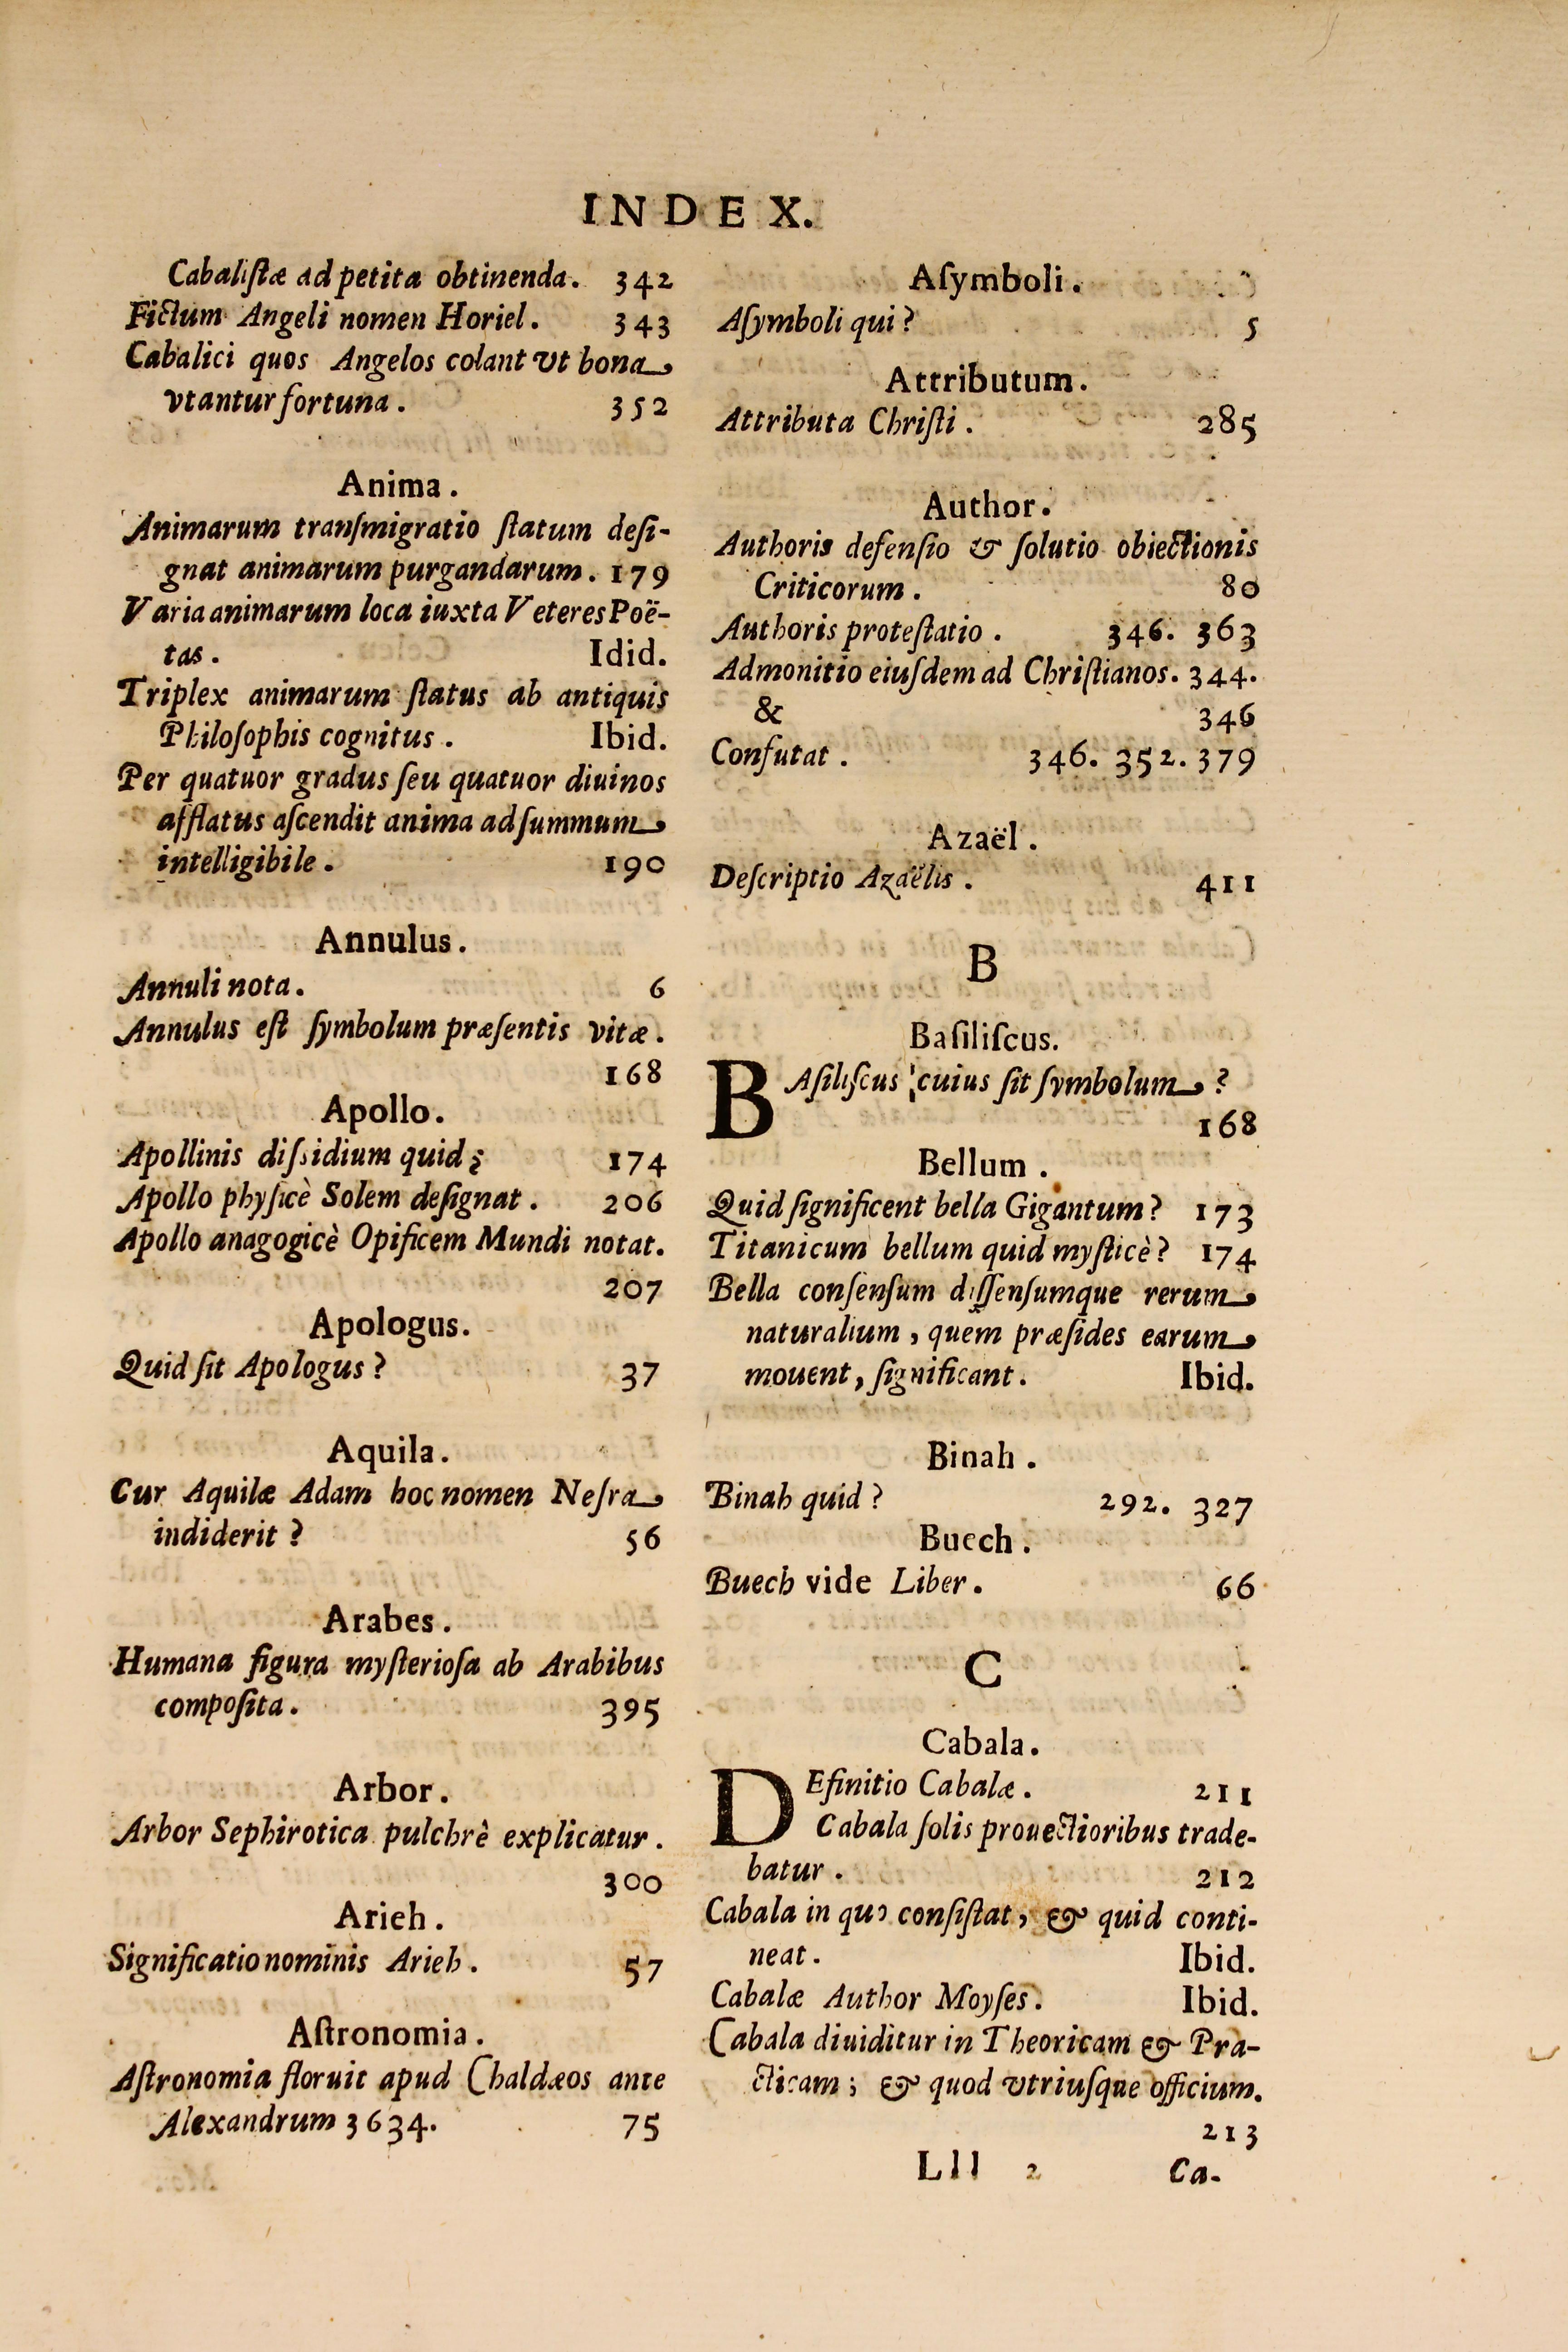 INDEX.
Cabaliſtæ ad petita obtinenda. 342
Fictum Angeli nomen Horiel. 343
Cabalici quos Angelos colant vt bona
vtantur fortuna. 352
Anima.
Animarum tranſmigratio ſtatum deſi-
gnat animarum purgandarum. 179
Varia animarum loca iuxta Veteres Poë-
tas. Idid.
Triplex animarum ſtatus ab antiquis
Philoſophis cognitus. Ibid.
Per quatuor gradus ſeu quatuor diuinos
afflatus aſcendit anima ad ſummum
intelligibile. 190
Annulus.
Annuli nota. 6
Annulus eſt ſymbolum præſentis vitæ.
168
Apollo.
Apollinis diſsidium quid? 174
Apollo phyſicè Solem deſignat. 206
Apollo anagogicè Opificem Mundi notat.
207
Apologus.
Quid ſit Apologus? 37
Aquila.
Cur Aquilæ Adam hoc nomen Neſra
indiderit? 56
Arabes.
Humana figura myſterioſa ab Arabibus
compoſita. 395
Arbor.
Arbor Sephirotica pulchrè explicatur.
300
Arieh.
Significatio nominis Arieh. 57
Aſtronomia.
Aſtronomia floruit apud Chaldæos ante
Alexandrum 3634. 75
Aſymboli.
Aſymboli qui? 5
Attributum.
Attributa Chriſti. 285
Author.
Authoris defenſio & ſolutio obiectionis
Criticorum. 80
Authoris proteſtatio. 346. 363
Admonitio eiuſdem ad Chriſtianos. 344.
& 346
Confutat. 346. 352. 379
Azaël.
Deſcriptio Azaëlis. 411
B
Baſiliſcus.
BAſiliſcus cuius ſit ſymbolum?
168
Bellum.
Quid ſignificent bella Gigantum? 173
Titanicum bellum quid myſticè? 174
Bella conſenſum diſſenſumque rerum
naturalium, quem præſides earum
mouent, ſignificant. Ibid.
Binah.
Binah quid? 292. 327
Buech.
Buech vide Liber. 66
C
Cabala.
DEfinitio Cabalæ. 211
Cabala ſolis prouectioribus trade-
batur. 212
Cabala in quo conſiſtat, & quid conti-
neat. Ibid.
Cabalæ Author Moyſes. Ibid.
Cabala diuiditur in Theoricam & Pra-
cticam; & quod vtriuſque officium.
213
Lll 2 Ca-